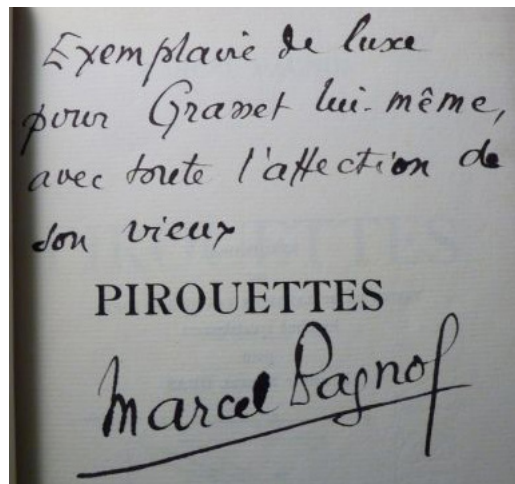 Exemplaire de luxe
pour Grasset lui-même,
avec toute l'affection de
son vieux
PIROUETTES
Marcel Pagnol